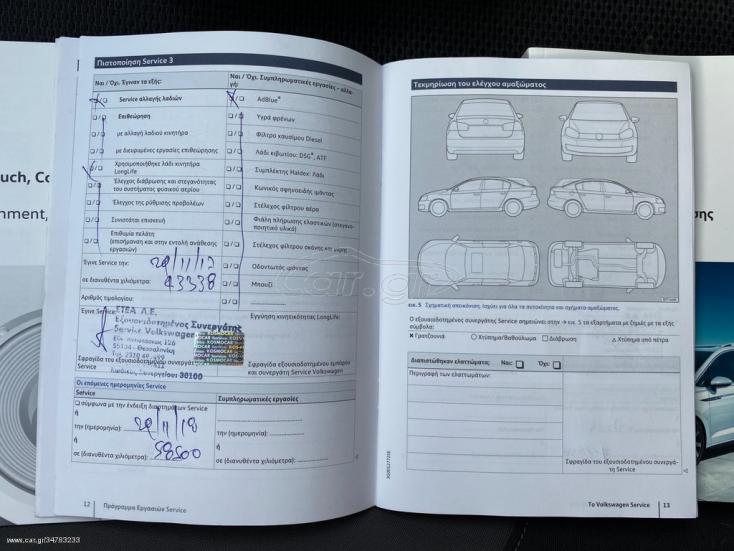 ouch, Co
nment,
Πιστοποίηση Service 3
Ναι / Όχι. Έγιναν τα εξής:
Service αλλαγής λαδιών
Επιθεώρηση
με αλλαγή λαδιού κινητήρα
με διευρυμένες εργασίες επιθεώρησης
Χρησιμοποιήθηκε λάδι κινητήρα
LongLife
Έλεγχος διάβρωσης και στεγανότητας
του συστήματος φυσικού αερίου
Έλεγχος της ρύθμισης προβολέων
Συνιστάται επισκευή
Επιθυμία πελάτη
(επισήμανση και στην εντολή ανάθεσης
εργασιών)
Έγινε Service την: 29/11/17
σε διανυθέντα χιλιόμετρα: 43338
Αριθμός τιμολογίου:
Έγινε Service
ΕΤΕΑ Α.Ε.
Εξουσιοδοτημένος Συνεργάτης
Service Volkswagen
KOSMOCAR
Σφραγίδα του εξουσιοδοτημένου συνεργάτη
Service
Ναι / Όχι. Συμπληρωματικές εργασίες – αλλα-
γή:
AdBlue®
Υγρά φρένων
Φίλτρο καυσίμου Diesel
Λάδι κιβωτίου: DSG®, ATF
Συμπλέκτης Haldex: Λάδι
Κωνικός σφηνοειδής ιμάντας
Στέλεχος φίλτρου αέρα
Φιάλη πλήρωσης ελαστικών (στεγανο-
ποιητικό υλικό)
Στέλεχος φίλτρου σκόνης και γύρης
Οδοντωτός ιμάντας
Μπουζί
Εγγύηση κινητικότητας LongLife:
Σφραγίδα του εξουσιοδοτημένου εμπόρου
και συνεργάτη Service Volkswagen
Οι επόμενες ημερομηνίες Service
σύμφωνα με την ένδειξη διαστημάτων Service
ή
την (ημερομηνία): 29/11/18
ή
σε (διανυθέντα χιλιόμετρα): 58500
Συμπληρωματικές εργασίες
την (ημερομηνία):
ή
σε (διανυθέντα χιλιόμετρα):
12 Πρόγραμμα Εργασιών Service
Τεκμηρίωση του ελέγχου αμαξώματος
εικ. 5 Σχηματική απεικόνιση. Ισχύει για όλα τα αυτοκίνητα και σχήματα αμαξώματος.
Ο εξουσιοδοτημένος συνεργάτης Service σημειώνει στην → εικ. 5 τα εξαρτήματα με ζημιές με τα εξής
σύμβολα:
× Γρατζουνιά ○ Χτύπημα/Βαθούλωμα □ Διάβρωση △ Χτύπημα από πέτρα
Διαπιστώθηκαν ελαττώματα: Ναι: Όχι:
Περιγραφή των ελαττωμάτων:
Σφραγίδα του εξουσιοδοτημένου συνεργά-
τη Service
Το Volkswagen Service 13
σης
car.gr
www.car.gr/34783233